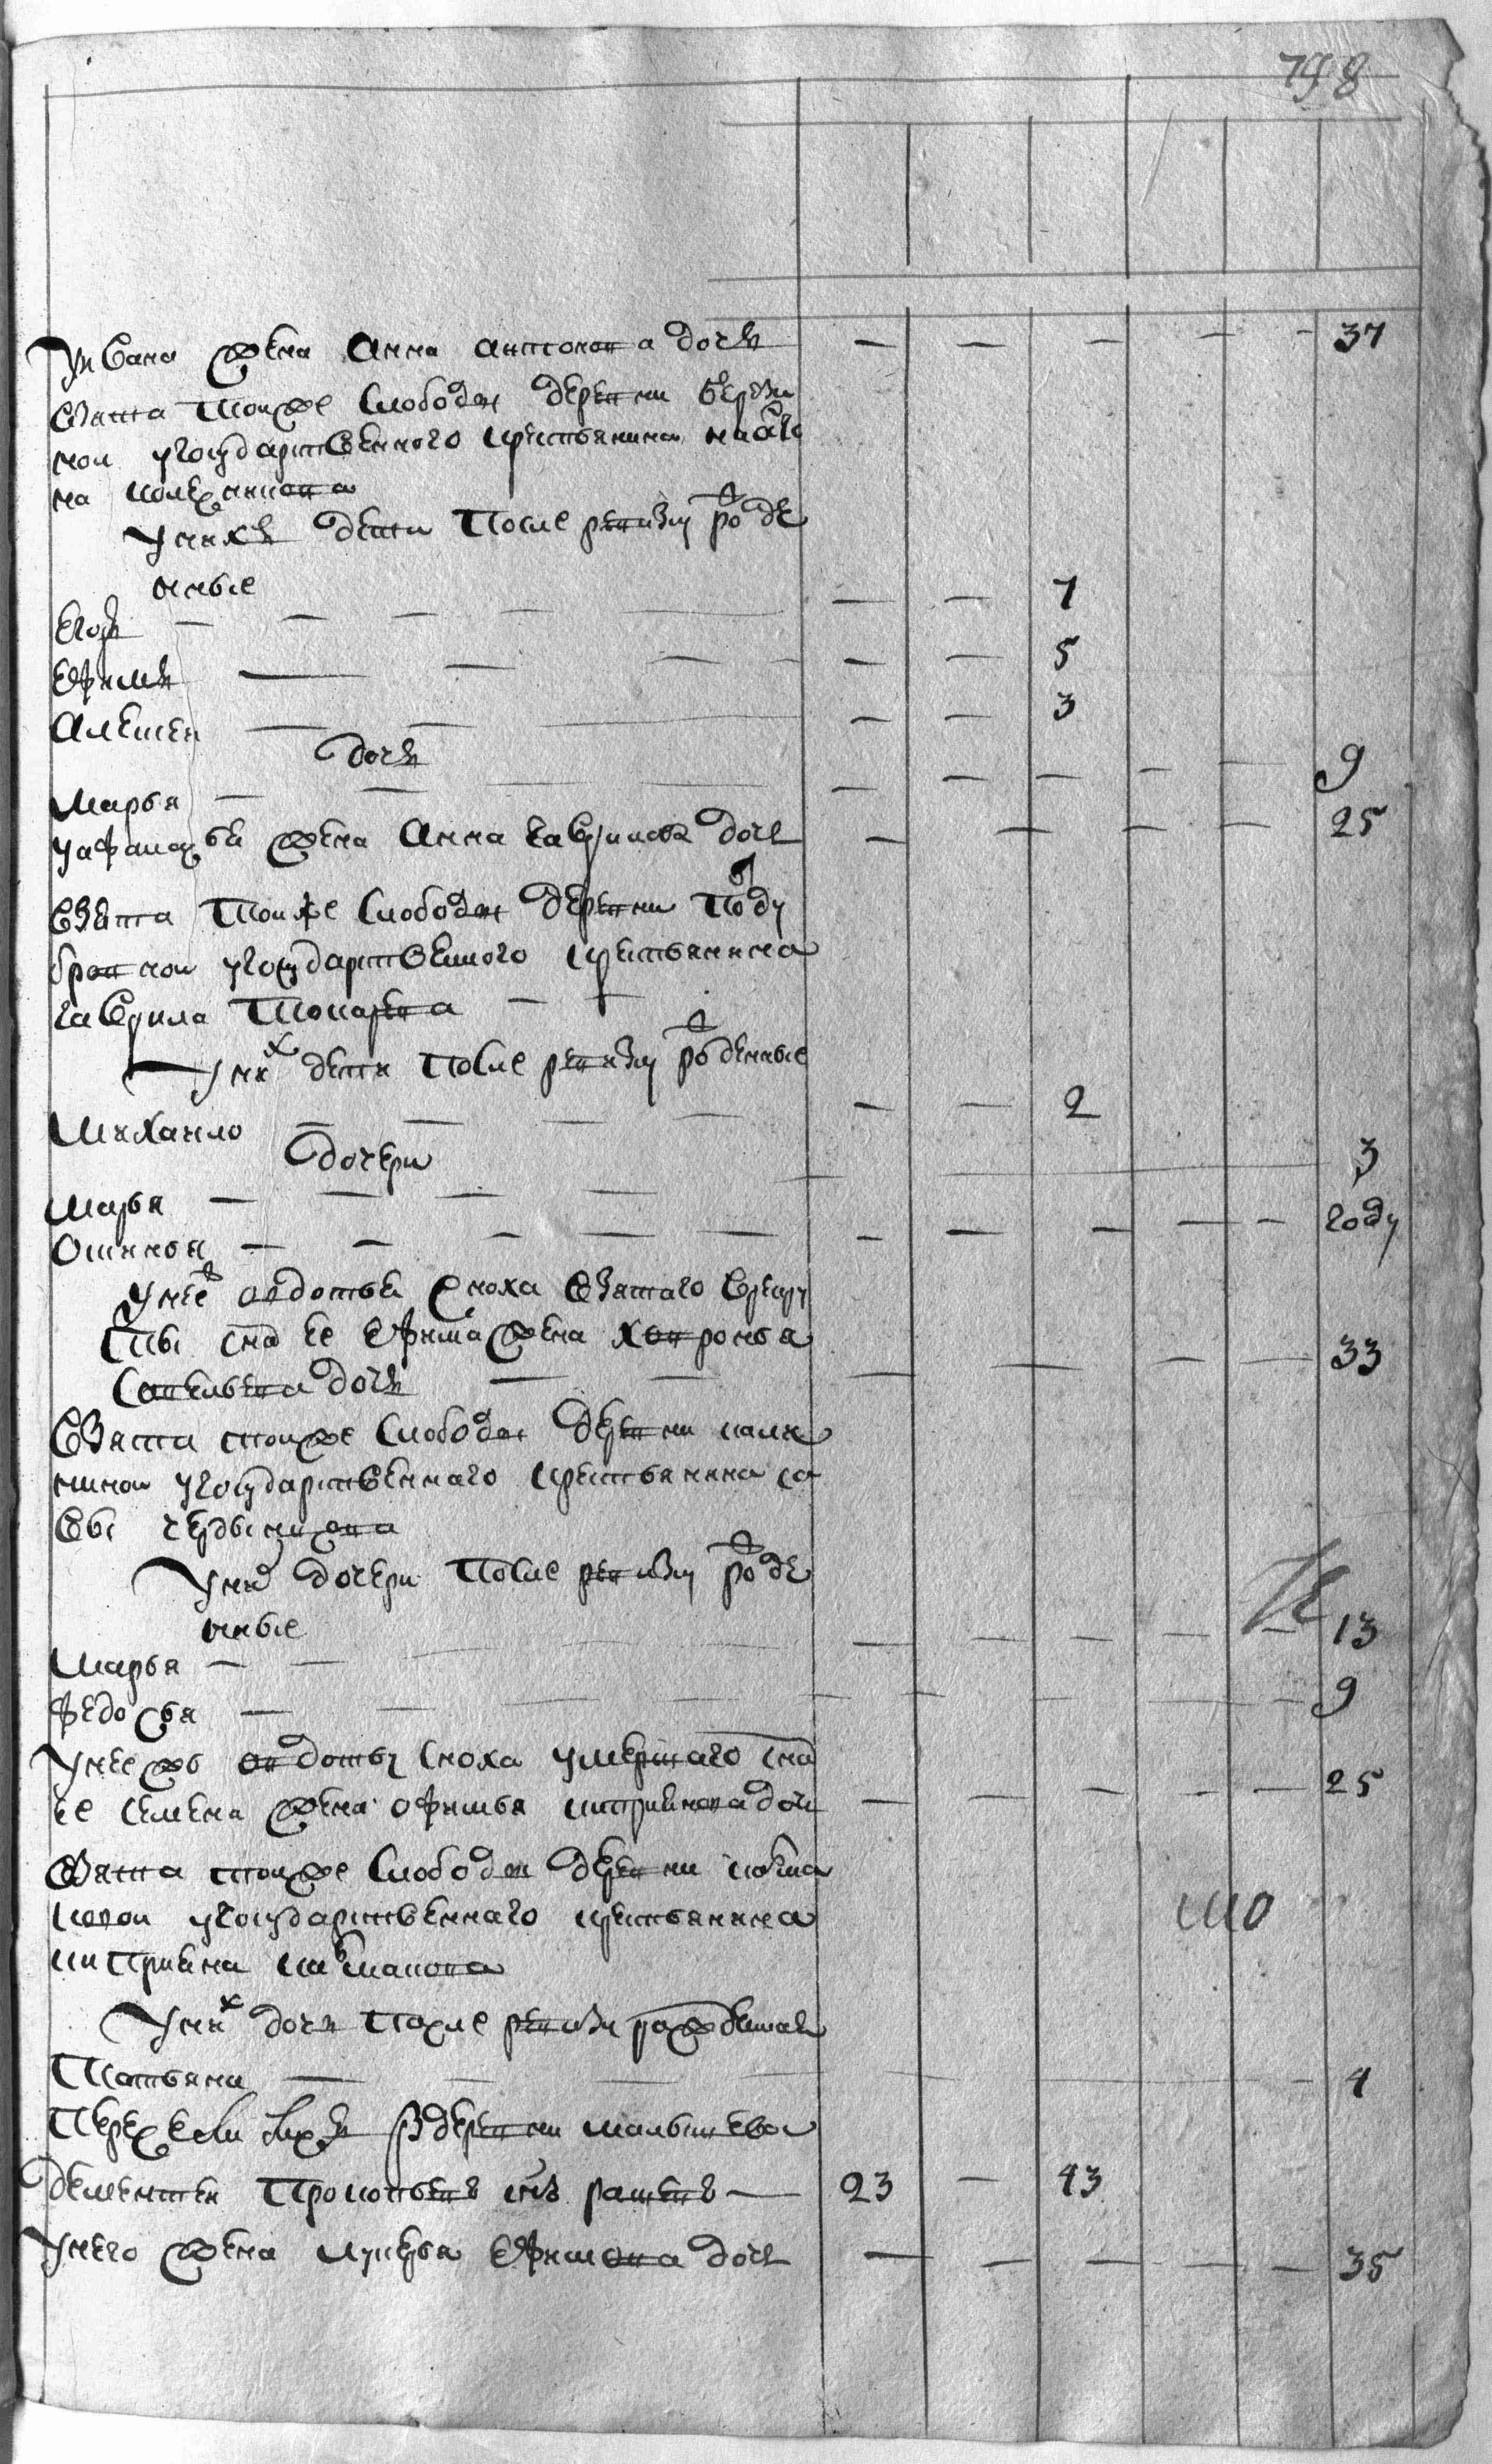 798
У Ивана жена Анна Антонова дочь — — — — — 37
взята тоиже слободы деревни Берези
нои у государственного крестьянина
на
у них дети после ревизи рожде
нные
Егор — — — — — 7
Ефимъ — — — — — 5
Алексеи — — — — 3
дочь
Марья — — — — — — — — 9
У Афанасья жена Анна Гаврилова дочь — — — — 25
взята тоиже слободы деревни Поду
бровнои у государственного крестьянина
Гаврила Токарева —
у них дети после ревизи рожденные
Михаило — — — — — 2
дочери
Марья — — — — — 3
Офимья — — — — — — — — — — году
у нее Авдотьи сноха взятаго в рекру
ты сна ее Ефима жена Ховронья
Савельева дочь — — — — — — 33
взята тоиже слободы деревни Кали
нинои у государственнаго крестьянина Са
вы
у них дочери после ревизи рожде
нные
Марья — — — — — — — 13
Федосья — — — — — — — 9
у нее жъ Авдотьи сноха умершаго сна
ее Семена жена Офимья Киприянова дочь — — — — — 25
взята тоиже слободы деревни Кокша
ровои у государственнаго крестьянина
Киприяна Кокшарова
у них дочь после ревизи рожденная
Татьяна — — — — 4
деревни
Дементеи Прокопьевъ снъ — 23 — 43
у него жена Лукерья Ефимова дочь — — — — — 35